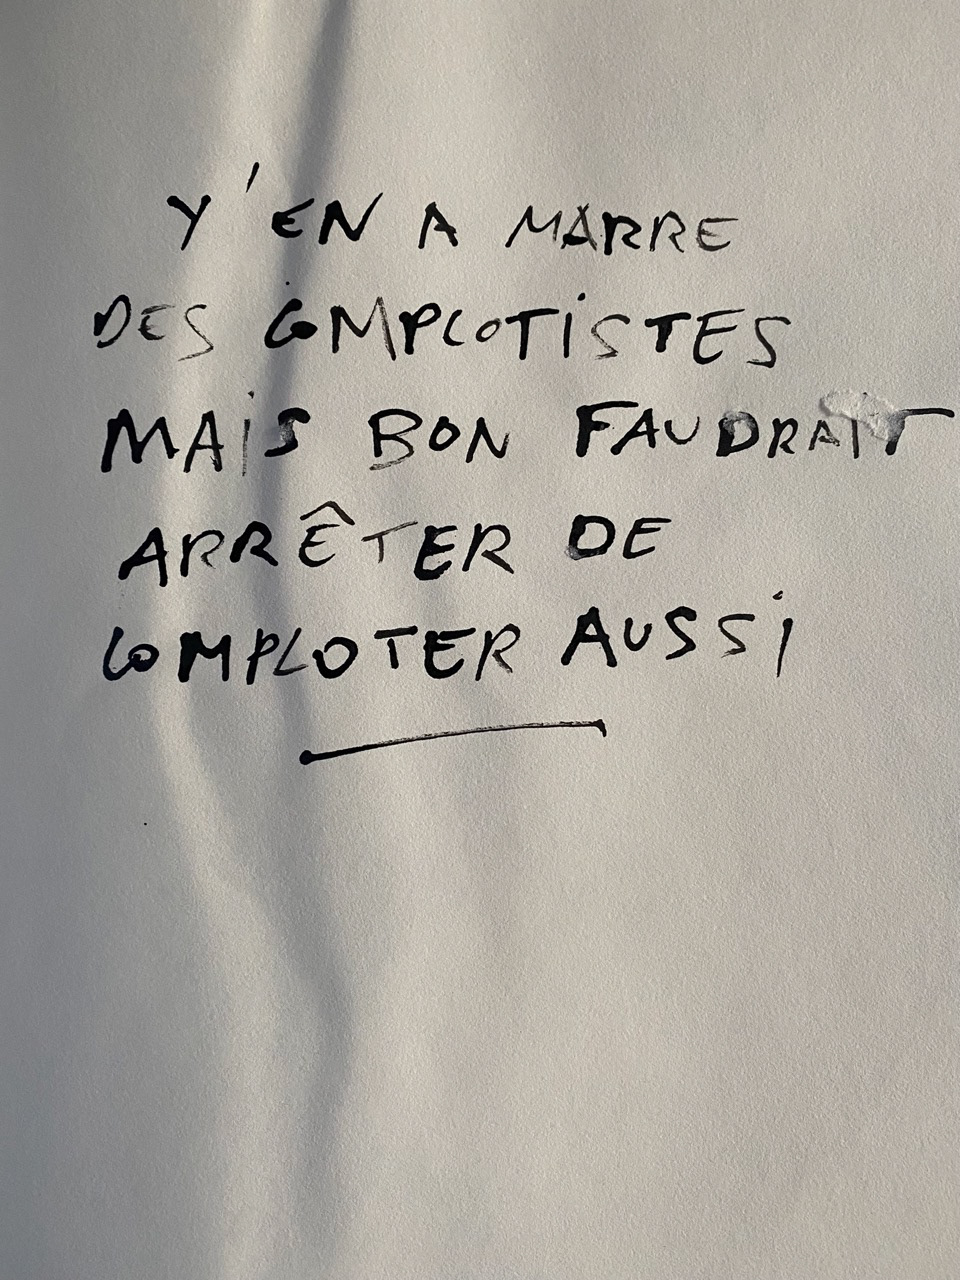 Y'EN A MARRE
DES COMPLOTISTES
MAIS BON FAUDRAIT
ARRÊTER DE
COMPLOTER AUSSI